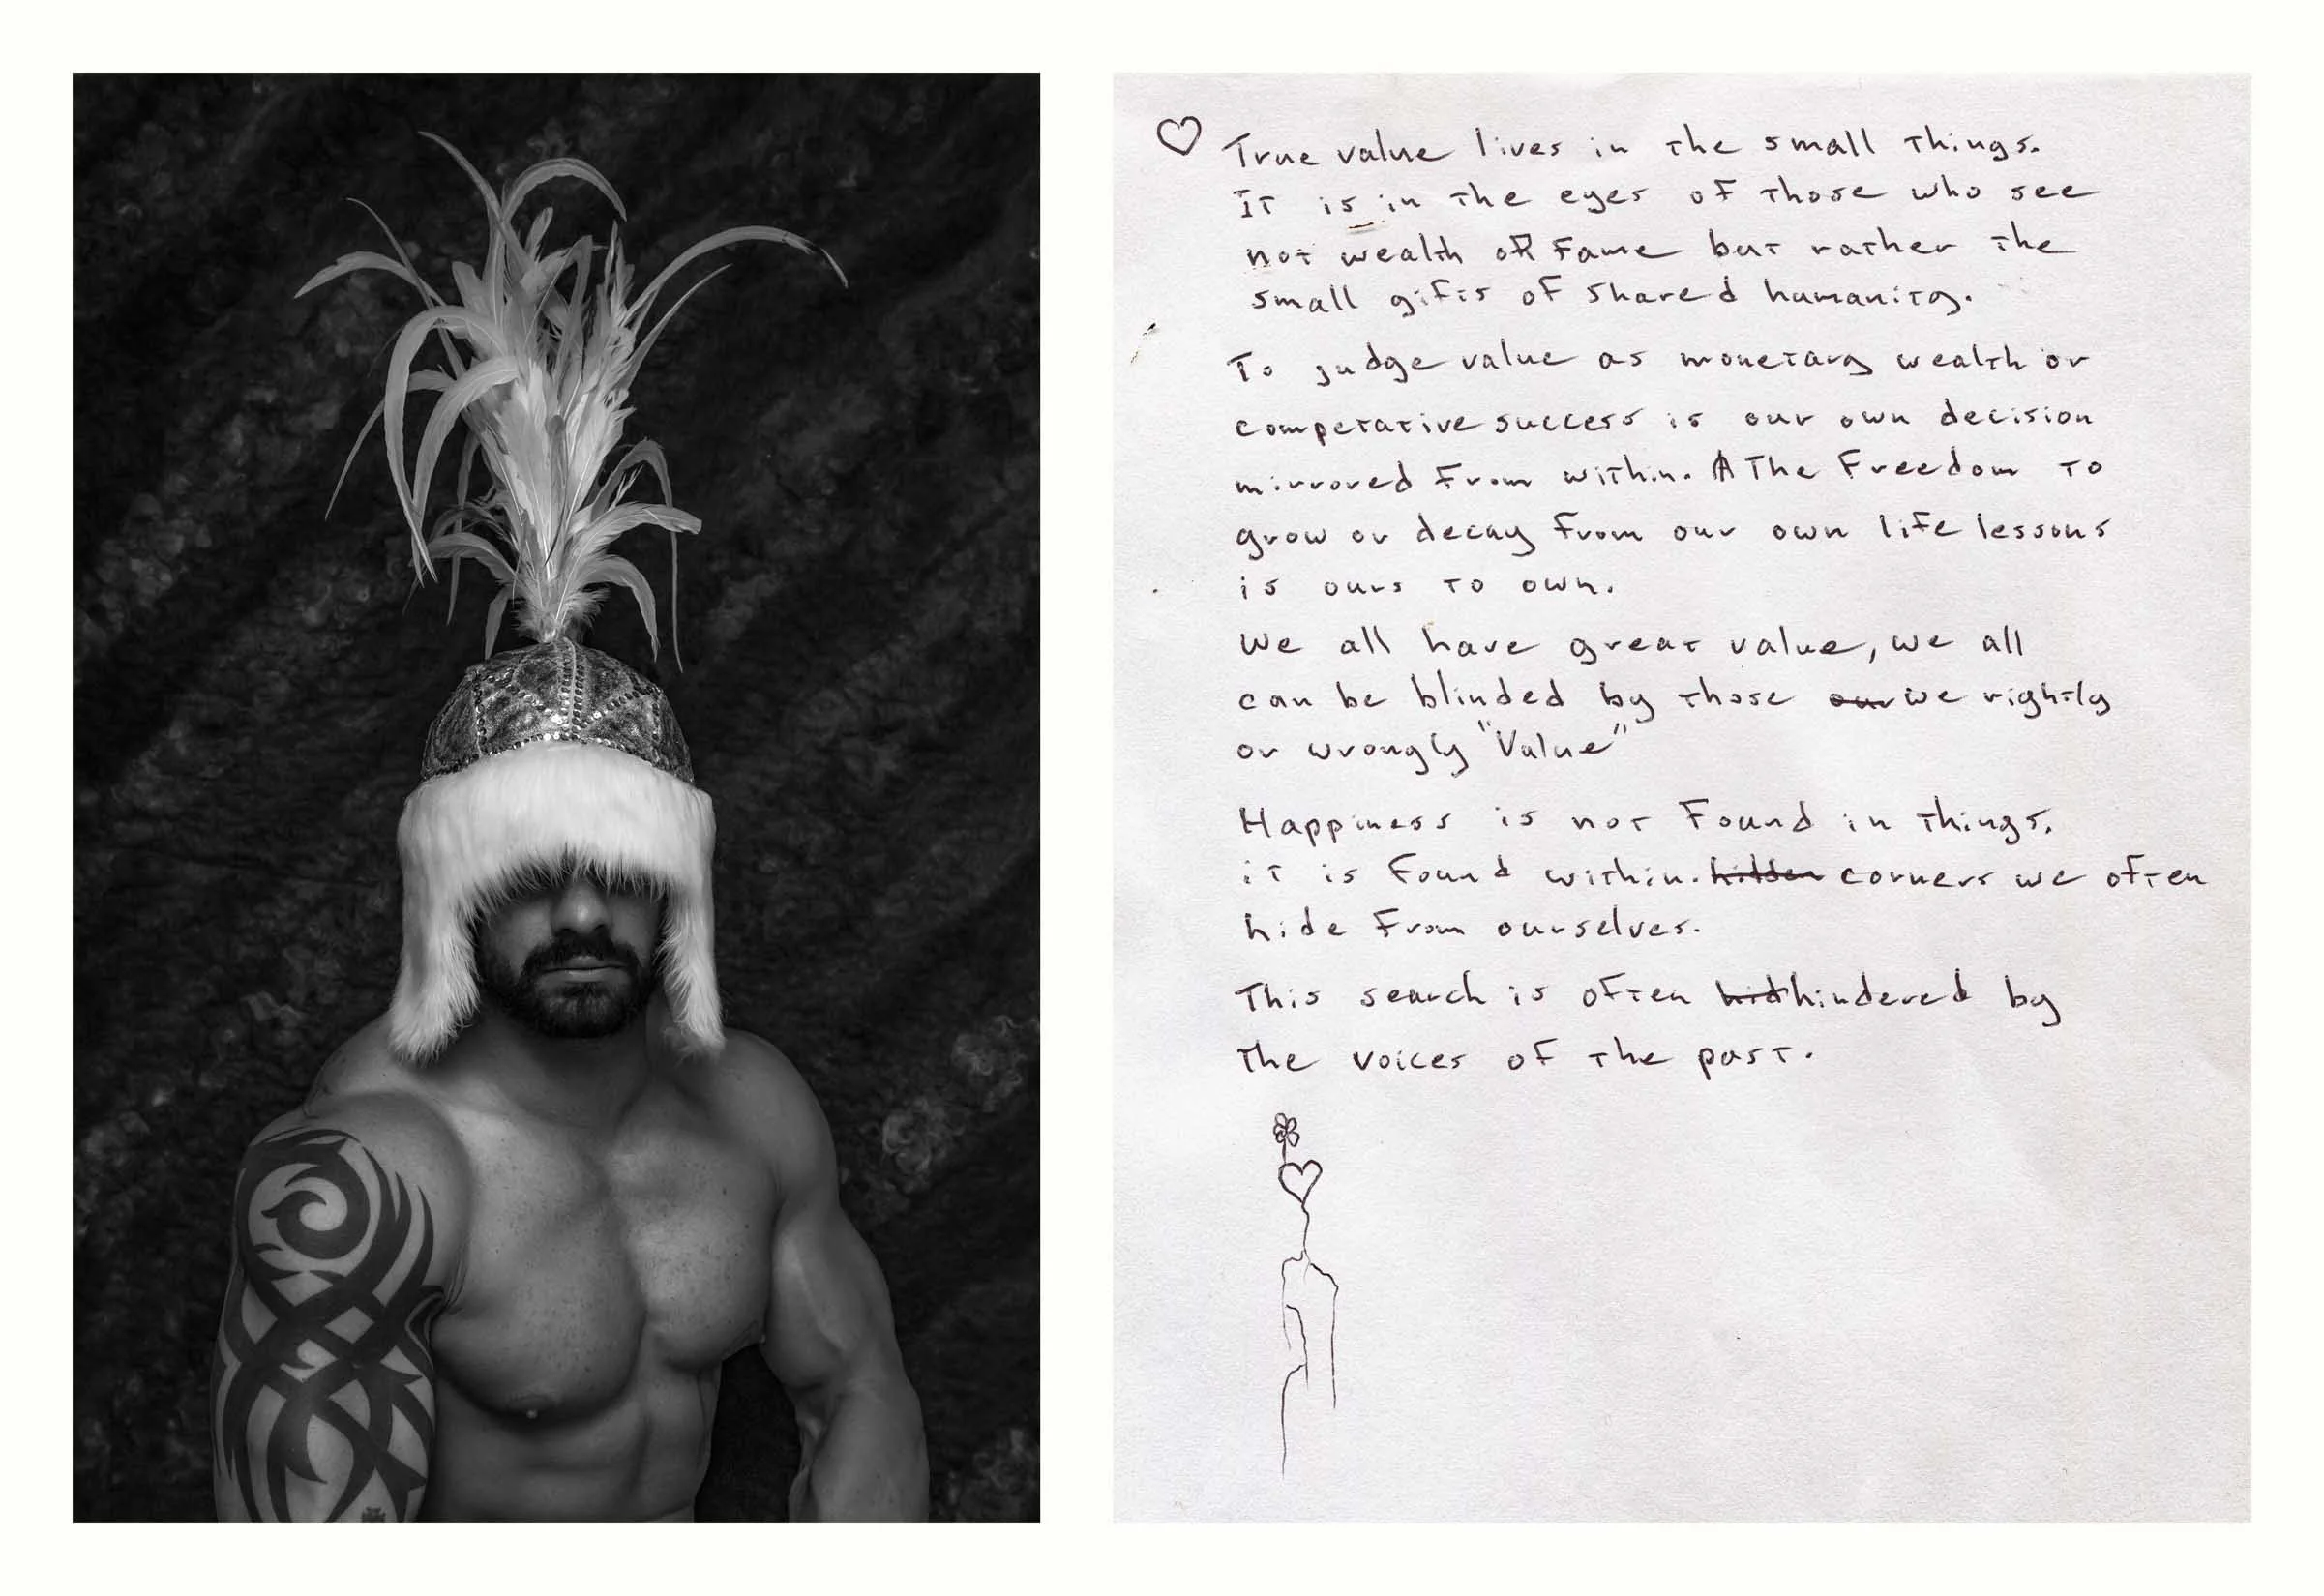 True value lives in the small things.
It is in the eyes of those who see
not wealth or fame but rather the
small gifts of shared humanity.
To judge value as monetary wealth or
competative success is our own decision
mirrored from within. The Freedom to
grow or decay from our own life lessons
is ours to own.
We all have great value, we all
can be blinded by those our we rightly
or wrongly "Value"
Happiness is not found in things.
it is found within. hidden corners we often
hide from ourselves.
This search is often hid hindered by
the voices of the past.